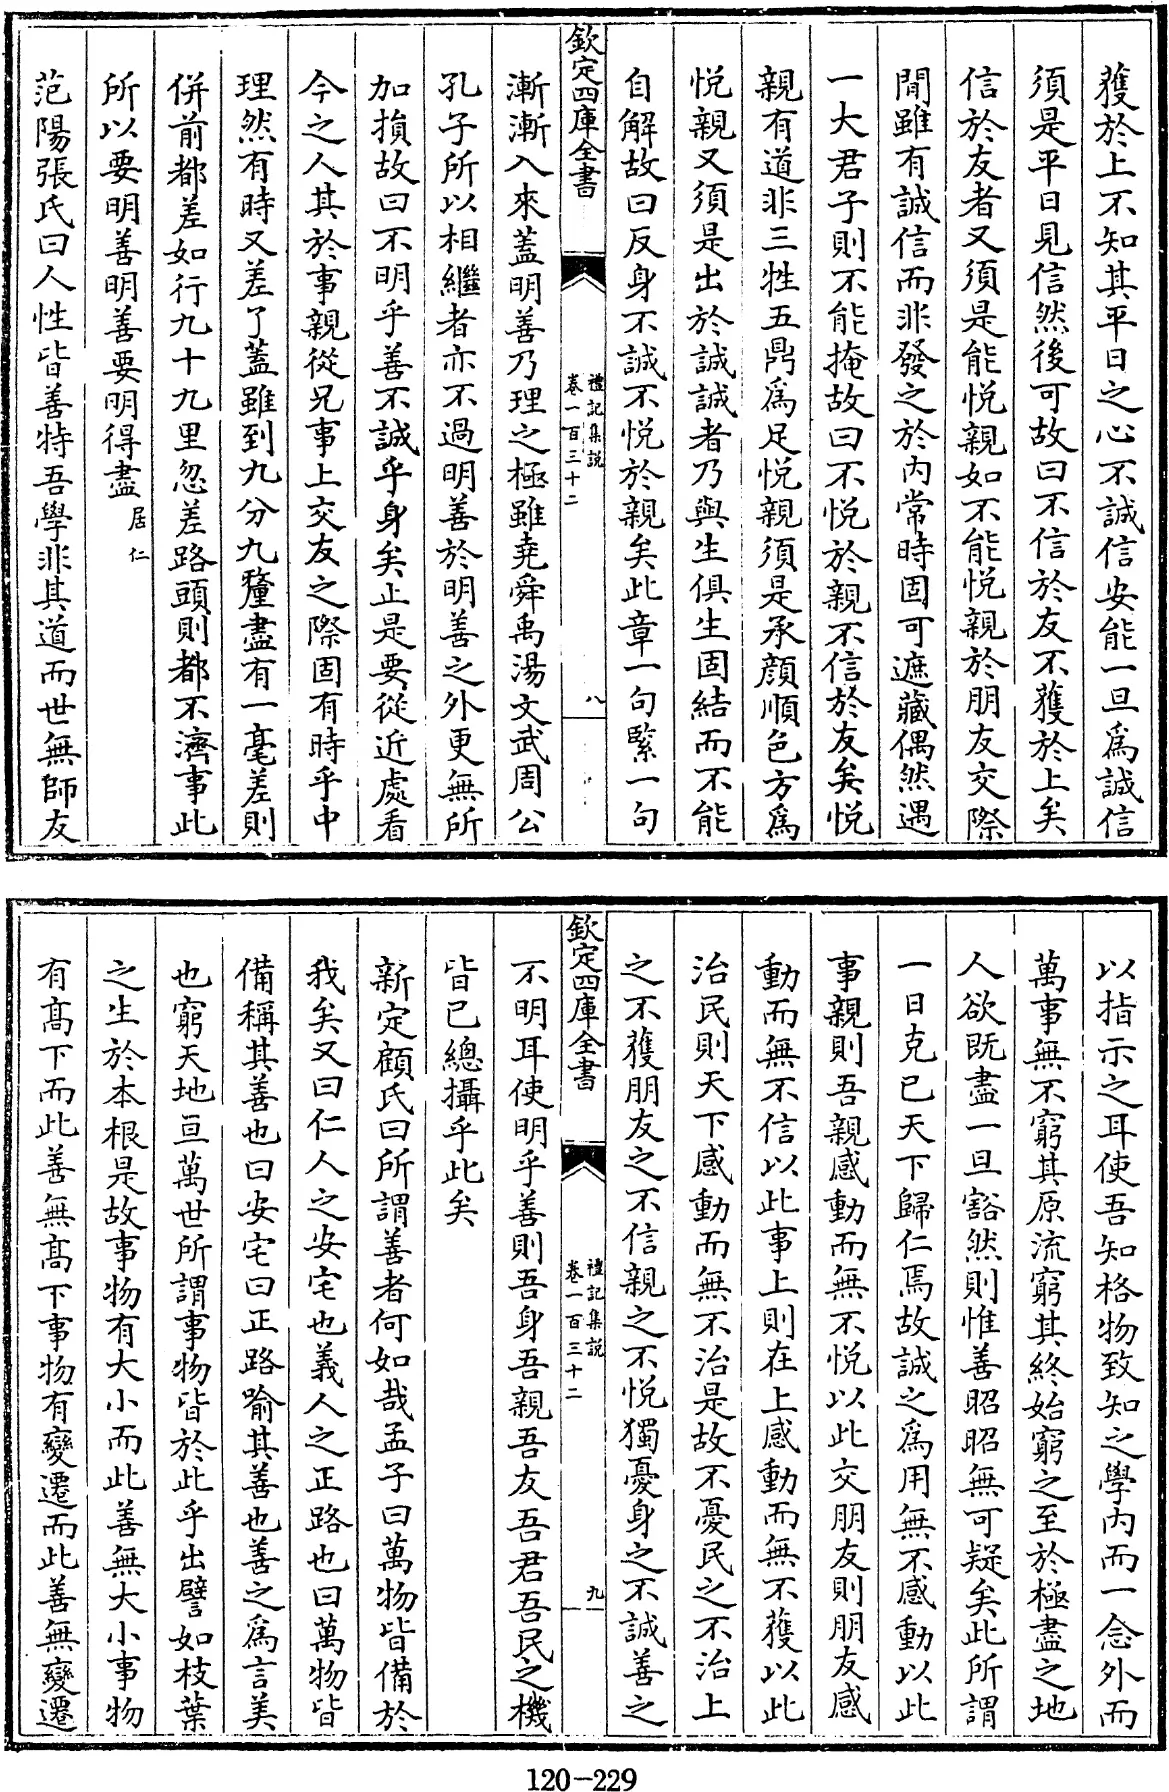 獲於上不知其平日之心不誠信安能一旦爲誠信
須是平日見信然後可故曰不信於友不獲於上矣
信於友者又須是能悦親如不能悦親於朋友交際
間雖有誠信而非發之於内常時固可遮藏偶然遇
一大君子則不能掩故曰不悦於親不信於友矣悦
親有道非三牲五鼎爲足悦親須是承顔順色方爲
悦親又須是出於誠誠者乃與生俱生固結而不能
自解故曰反身不誠不悦於親矣此章一句緊一句
欽定四庫全書
禮記集説
卷一百三十二
八
漸漸入來蓋明善乃理之極雖堯舜禹湯文武周公
孔子所以相繼者亦不過明善於明善之外更無所
加損故曰不明乎善不誠乎身矣止是要從近處看
今之人其於事親從兄事上交友之際固有時乎中
理然有時又差了蓋雖到九分九釐盡有一毫差則
併前都差如行九十九里忽差路頭則都不濟事此
所以要明善明善要明得盡居仁
范陽張氏曰人性皆善特吾學非其道而世無師友
以指示之耳使吾知格物致知之學内而一念外而
萬事無不窮其原流窮其終始窮之至於極盡之地
人欲既盡一旦豁然則惟善昭昭無可疑矣此所謂
一日克已天下歸仁焉故誠之爲用無不感動以此
事親則吾親感動而無不悦以此交朋友則朋友感
動而無不信以此事上則在上感動而無不獲以此
治民則天下感動而無不治是故不憂民之不治上
之不獲朋友之不信親之不悦獨憂身之不誠善之
欽定四庫全書
禮記集説
卷一百三十二
九
不明耳使明乎善則吾身吾親吾友吾君吾民之機
皆已總攝乎此矣
新定顧氏曰所謂善者何如哉孟子曰萬物皆備於
我矣又曰仁人之安宅也義人之正路也曰萬物皆
備稱其善也曰安宅曰正路喻其善也善之爲言美
也窮天地亘萬世所謂事物皆於此乎出譬如枝葉
之生於本根是故事物有大小而此善無大小事物
有髙下而此善無髙下事物有變遷而此善無變遷
120-229